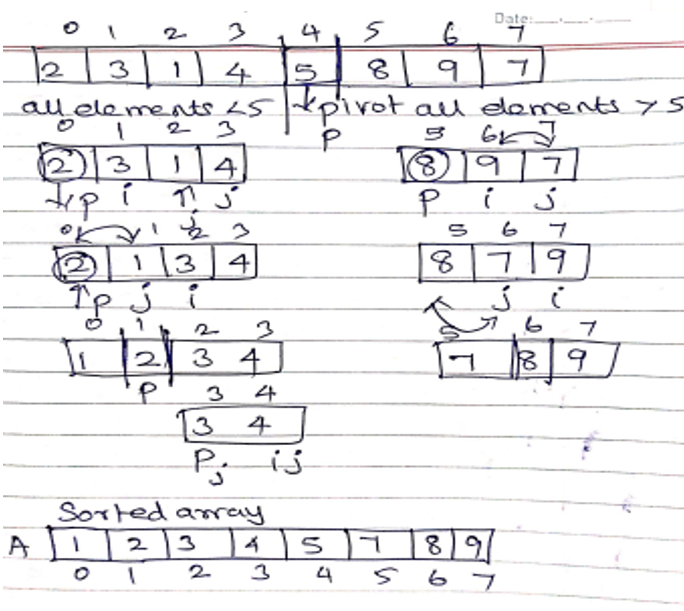 Date:
0 1 2 3 4 5 6 7
2 3 1 4 5 8 9 7
all elements <5 pivot all elements > 5
0 1 2 3 P 5 6 7
2 3 1 4 8 9 7
p i j j P i j
0 1 2 3 5 6 7
2 1 3 4 8 7 9
p j i j i
0 1 2 3 5 6 7
1 2 3 4 7 8 9
P 3 4
3 4
P j i j
Sorted array
A 1 2 3 4 5 7 8 9
0 1 2 3 4 5 6 7